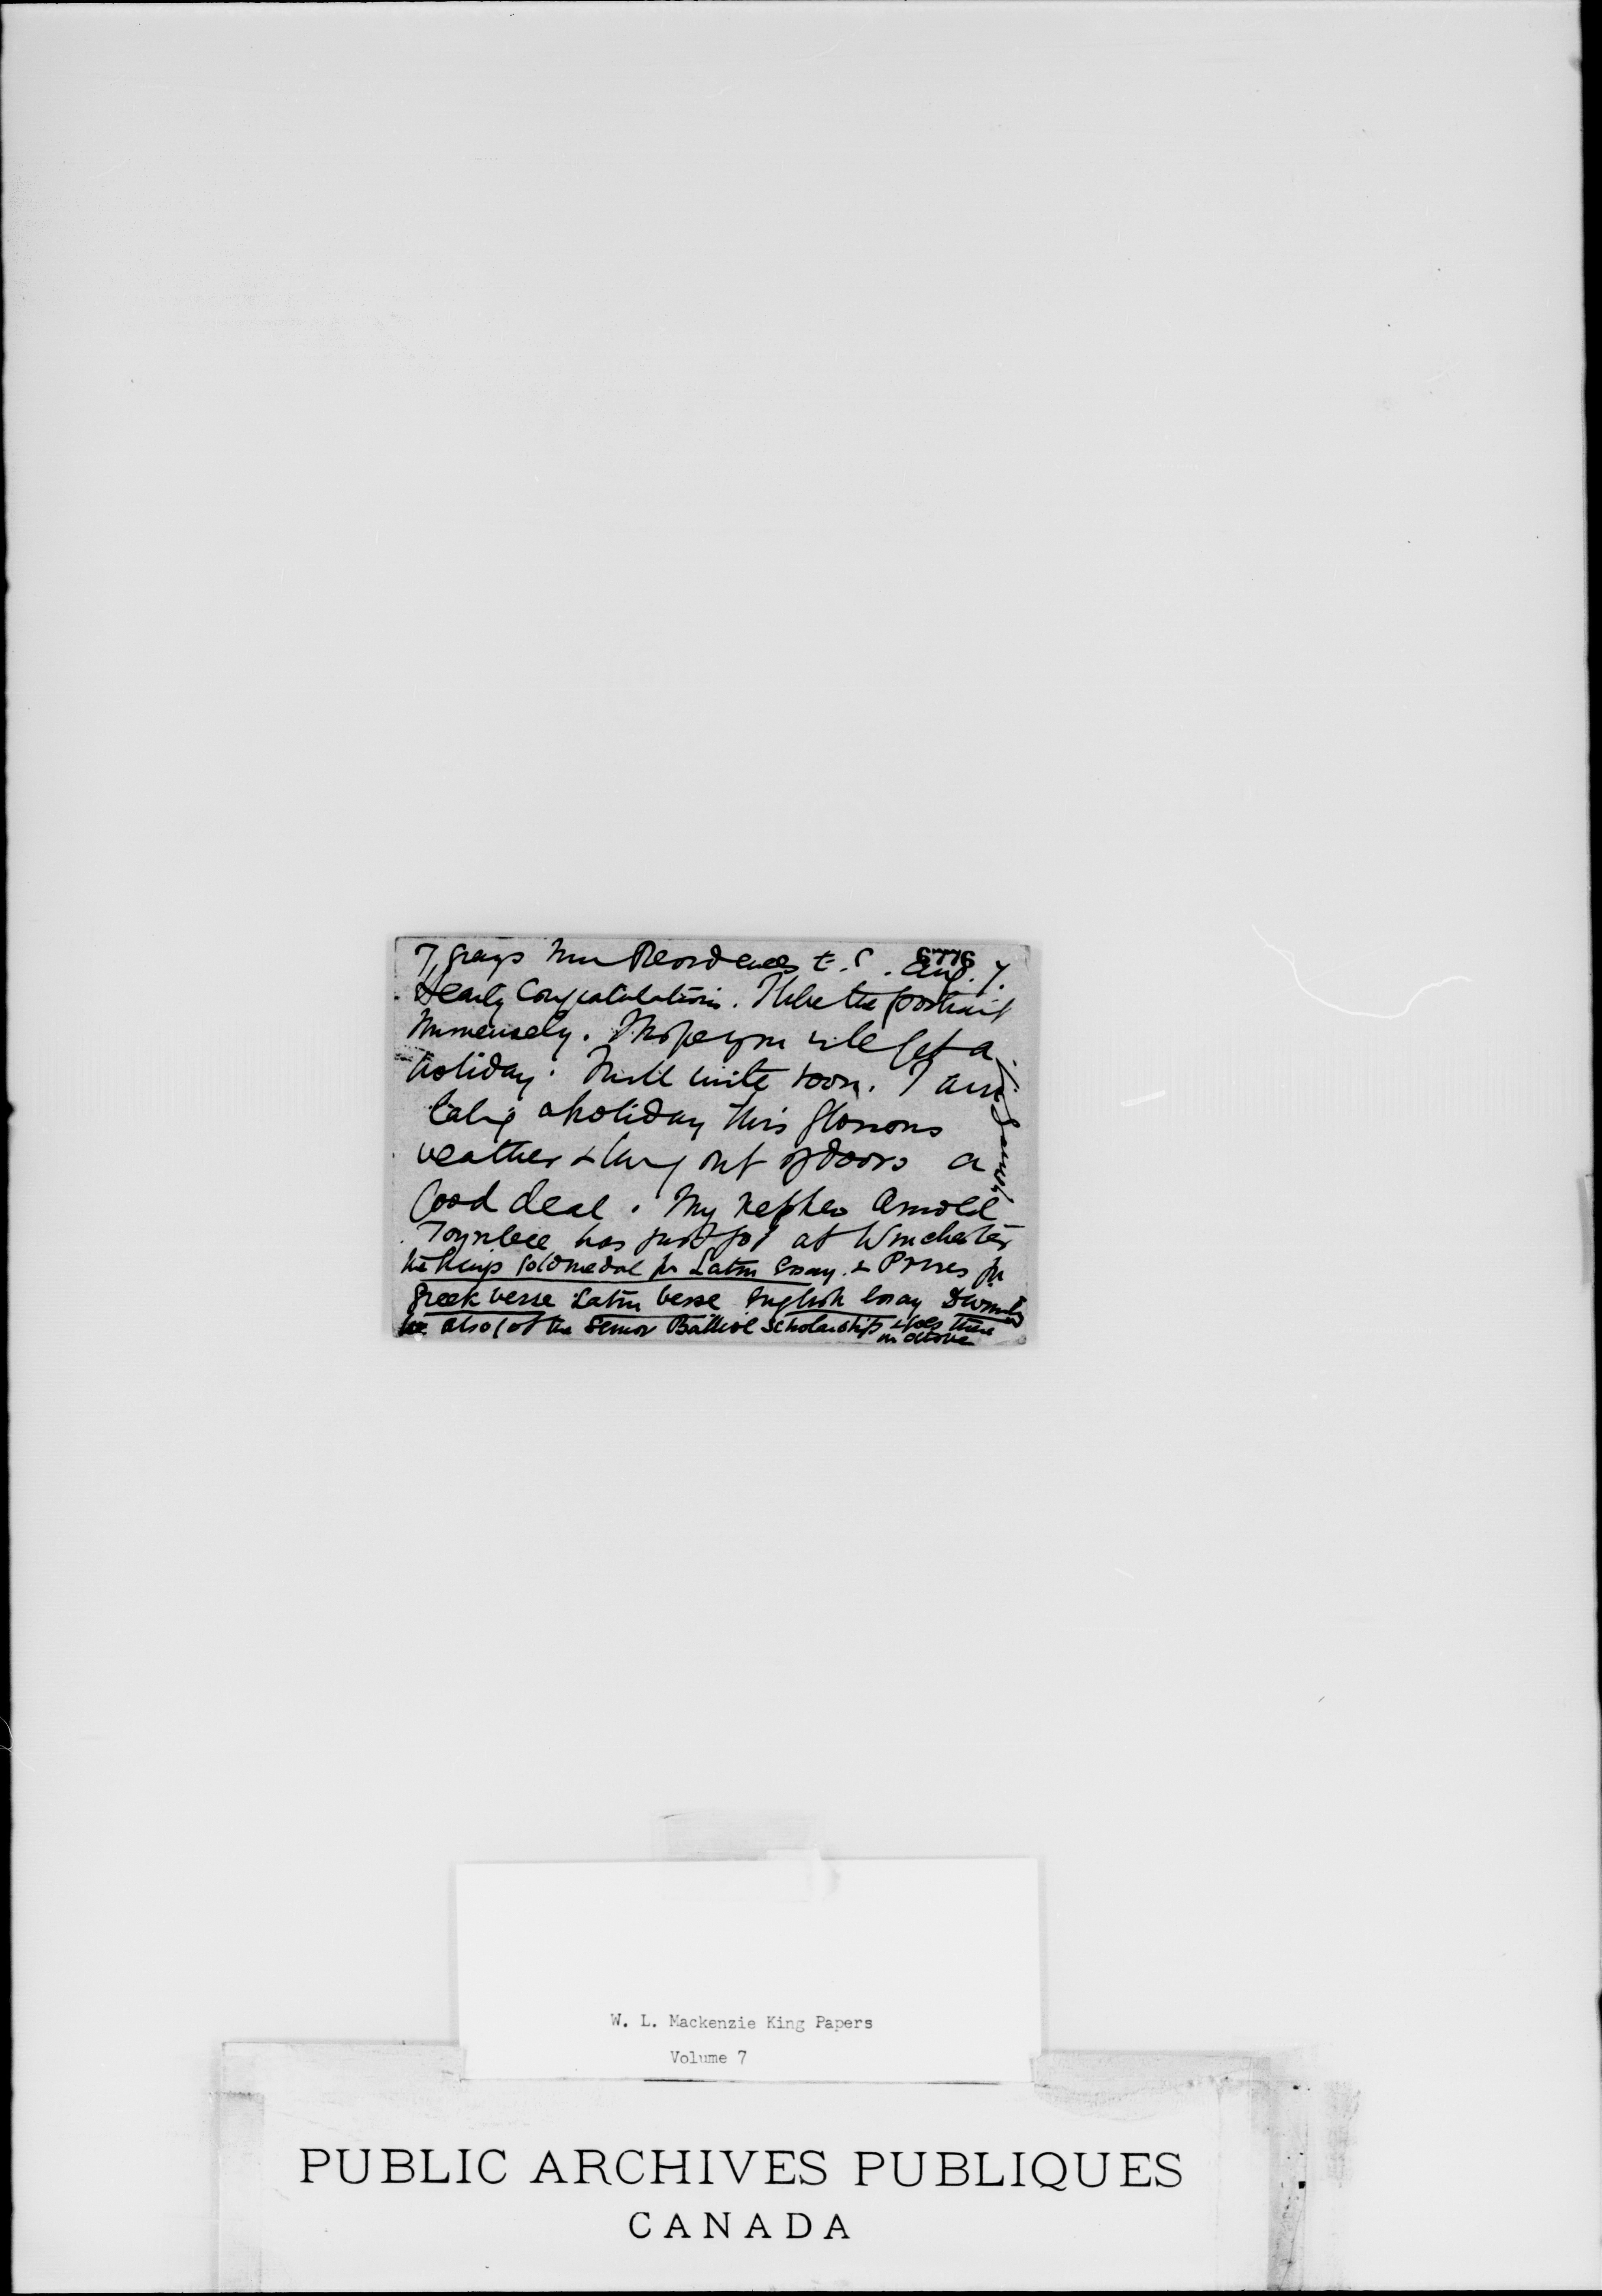 7, Grays Inn Residences E.C. Aug. 7.
6776
Hearty Congratulations. I like the portrait
immensely. I hope you will get a
holiday. I will write soon. I am
taking a holiday this glorious
weather & living out of doors a
Good deal. My nephew Arnold
Toynbee has just got at Winchester
the Kings Gold medal for Latin Essay & Prizes for
Greek verse Latin verse English Essay
he also got the Senior Balliol Scholarship & goes there
in October
W. L. Mackenzie King Papers
Volume 7
PUBLIC ARCHIVES PUBLIQUES
CANADA